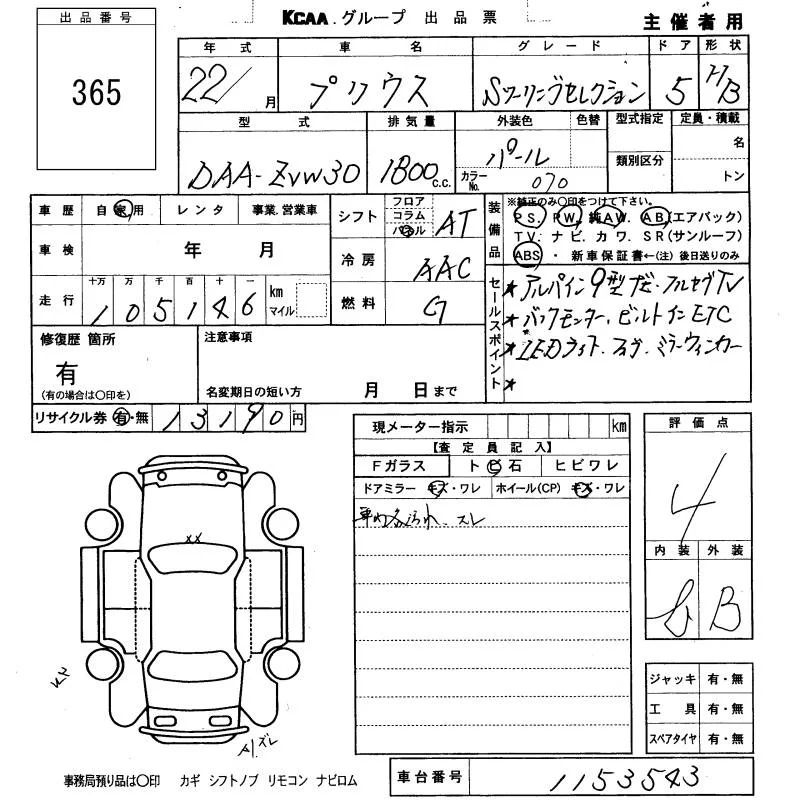 KCAA. グループ 出品票
主催者用
出品番号
365
年式 車名 グレード ドア 形状
22/ 月 プリウス Sツーリングセレクション 5 H/B
型式 排気量 外装色 色替 型式指定 定員・積載
DAA-ZVW30 1800 C.C. パール
カラーNo. 070
類別区分
名
トン
車歴 自家用 レンタ 事業.営業車
車検 年 月
走行 十万 万 千 百 十 一
105146 km マイル
シフト フロア コラム パネル AT
冷房 AAC
燃料 G
装備品
※純正のみ〇印をつけて下さい。
P S, P W, 純A W. A B,(エアバック)
T V. ナ ビ, カ ワ. S R(サンルーフ)
ABS ・ 新車保証書←(注) 後日送りのみ
セールスポイント
★ アルパイン9型ナビ・フルセグTV
★ バックモニター, ビルトインETC
★ LEDライト・フォグ・ミラーウィンカー
★
修復歴 箇所
有
(有の場合は〇印を)
注意事項
名変期日の短い方 月 日まで
リサイクル券 有・無 13190円
現メーター指示 km
【査定員記入】
Fガラス トビ石 ヒビワレ
ドアミラー キズ・ワレ ホイール(CP) キズ・ワレ
車内多汚れ. スレ
評価点
4
内装 外装
B
XX
キズ
A1 ズレ
ジャッキ 有・無
工具 有・無
スペアタイヤ 有・無
事務局預り品は〇印 カギ シフトノブ リモコン ナビロム
車台番号 1153543